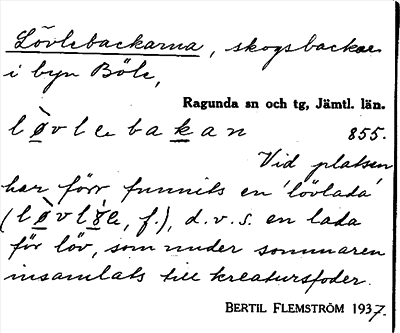 Lövlebackarna, skogsbackar
i byn Böle,
Ragunda sn och tg, Jämtl. län.
lø̀vlebakan 855.
Vid platsen
har förr funnits en 'lövlada'
(lø̀vlɑ̀e, f.), d.v.s. en lada
för löv, som under sommaren
insamlats till kreatursfoder.
BERTIL FLEMSTRÖM 1937.